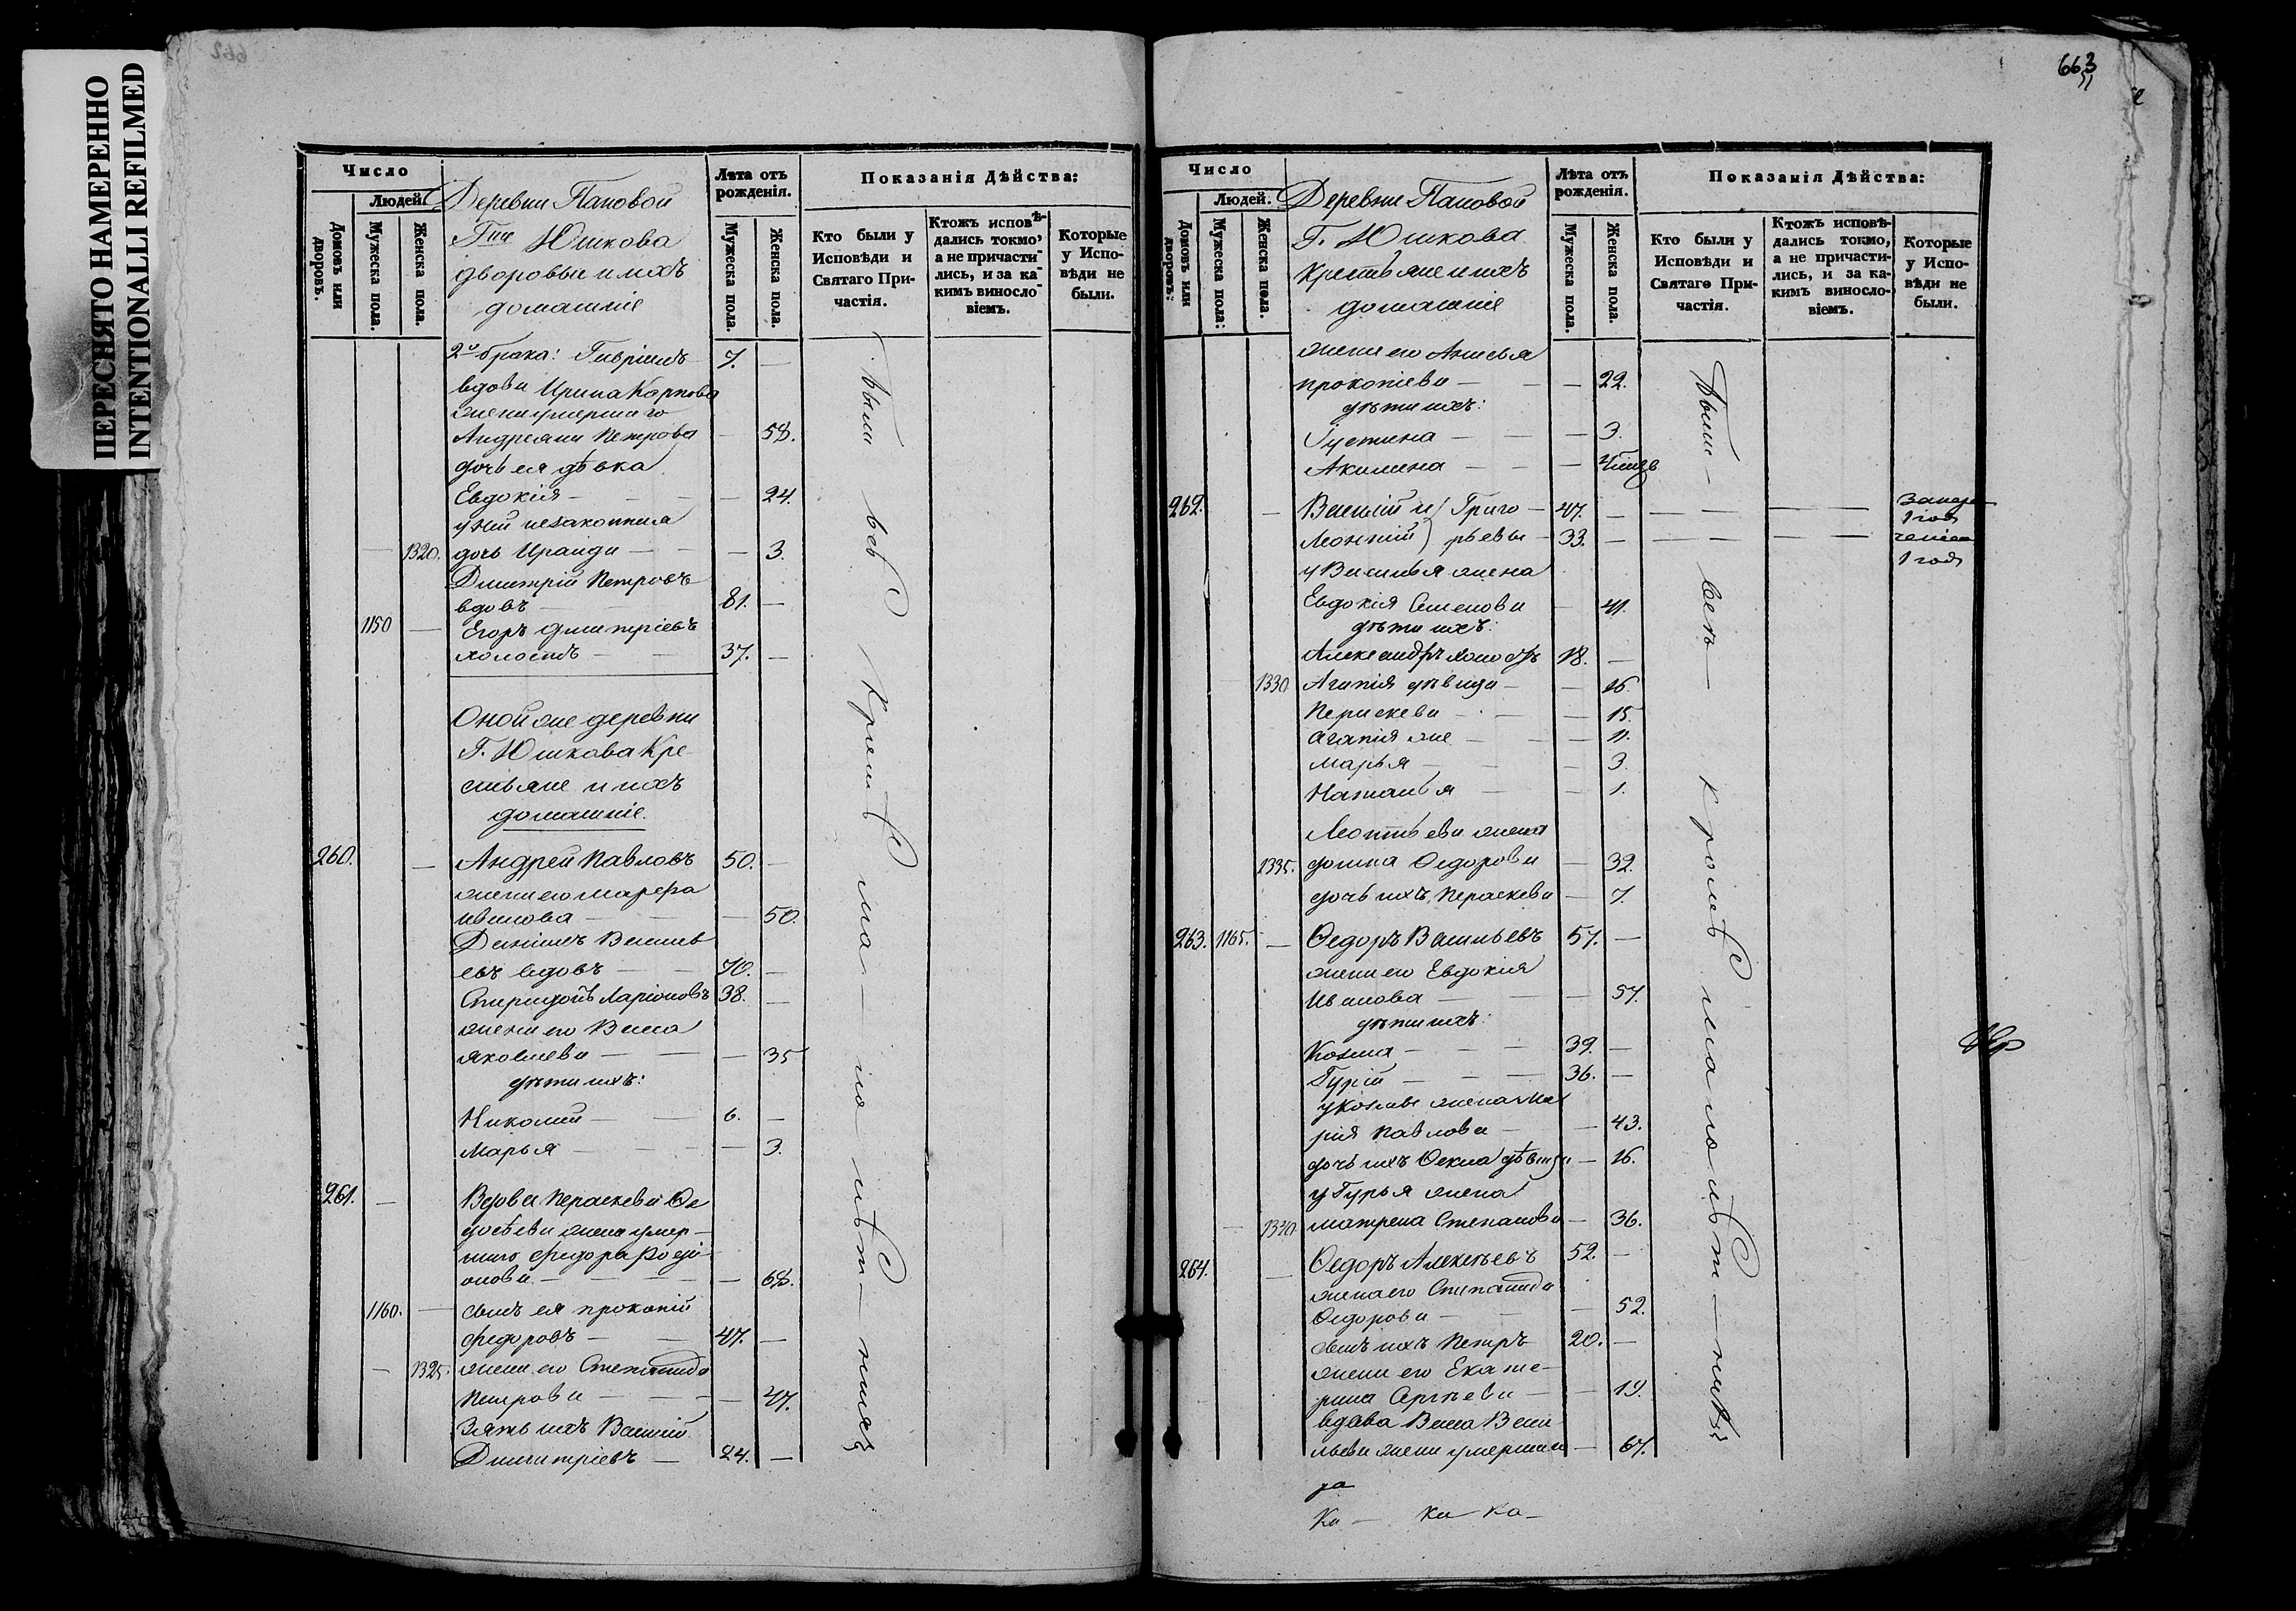 ПЕРЕСНЯТО НАМЕРЕННО
INTENTIONALLI REFILMED
662
Число
Людей
Домовъ или дворовъ.
Мужеска пола.
Женска пола.
Деревни Пановой
Г-на Юшкова
дворовые и ихъ
домашніе
Лѣта отъ рожденія.
Мужеска пола.
Женска пола.
Показанія Дѣйства:
Кто были у Исповѣди и Святаго При-частія.
Ктожъ исповѣ-дались токмо, а не причасти-лись, и за ка-кимъ виносло-віемъ.
Которые у Испо-вѣди не были.
2го брака: Гавріилъ 7. —
вдова Ирина Карпова
жена умершаго
Андреяна Петрова — 58.
дочь ея дѣвка
Евдокія — — 24.
у ней незаконная
— 1320. дочь Ираида — — 3.
Дмитрій Петровъ
вдовъ — 81. —
1150 — Егоръ Дмитріевъ
холостъ — 37. —
Оной же деревни
Г. Юшкова Кре-
стьяне и ихъ
домашніе.
260. — Андрей Павловъ 50. —
жена его Марѳа
Иванова — — 50.
Даніилъ Василь
евъ вдовъ — 70. —
Спиридонъ Ларіоновъ 38. —
жена его Васса
Яковлева — — 35
дѣти ихъ:
Николай — 6. —
Марья — — 3.
261. — Вдова Параскева Ѳе
досѣева жена умер-
шаго Федора Роді-
онова — — 68.
1160. — сынъ ея Прокопій
Федоровъ — 47. —
— 1325. жена его Степанида
Петрова — — 47.
Зять ихъ Василій
Димитріевъ — 24. —
Были всѣ кромѣ ма-ло-лѣт-нихъ
663
Число
Людей.
Домовъ или дворовъ:
Мужеска пола:
Женска пола.
Деревни Пановой
Г. Юшкова
крестьяне и ихъ
домашніе
Лѣта отъ рожденія.
Мужеска пола.
Женска пола.
Показанія Дѣйства:
Кто были у Исповѣди и Святаго При-частія.
Ктожъ исповѣ-дались токмо, а не причасти-лись, и за ка-кимъ виносло-віемъ.
Которые у Испо-вѣди не были.
жена его Анисья
Прокопіева — — 22.
дѣти ихъ:
Густина — — 3.
Акилина — —
262. — Василій и Григо — 47. — — —
1 год
Леонтій) рьевы — 33. — — —
1 год
у Василья жена
Евдокія Семенова — 41.
дѣти ихъ:
Александръ холостъ 18. —
1330 Агапія дѣвица — — 16.
Параскева — — 15.
Агапія же — — 11.
Марья — — 3.
Наталья — 1.
Леонтьева жена
1335. Домна Ѳедорова — 32.
дочь ихъ Параскева — 7.
263. 1165. — Ѳедоръ Васильевъ 57. —
жена его Евдокія
Иванова — — 57.
дѣти ихъ:
Козма — 39. —
Гурій — 36. —
у Козьмы жена Ма
рія Павлова — — 43.
дочь ихъ Ѳекла дѣвица — 16.
у Гурья жена
— 1340 Матрена Степанова — 36.
264. — Ѳедоръ Алексѣевъ 52. —
жена его Степанида
Ѳедорова — — 52.
сынъ ихъ Петръ 20. —
жена его Екате-
рина Сергѣева — — 19.
вдова Васса Васи
льева жена умершаго — 67.
Были — всѣ — кромѣ малолѣт-нихъ
ра
Ка — ка — ка —